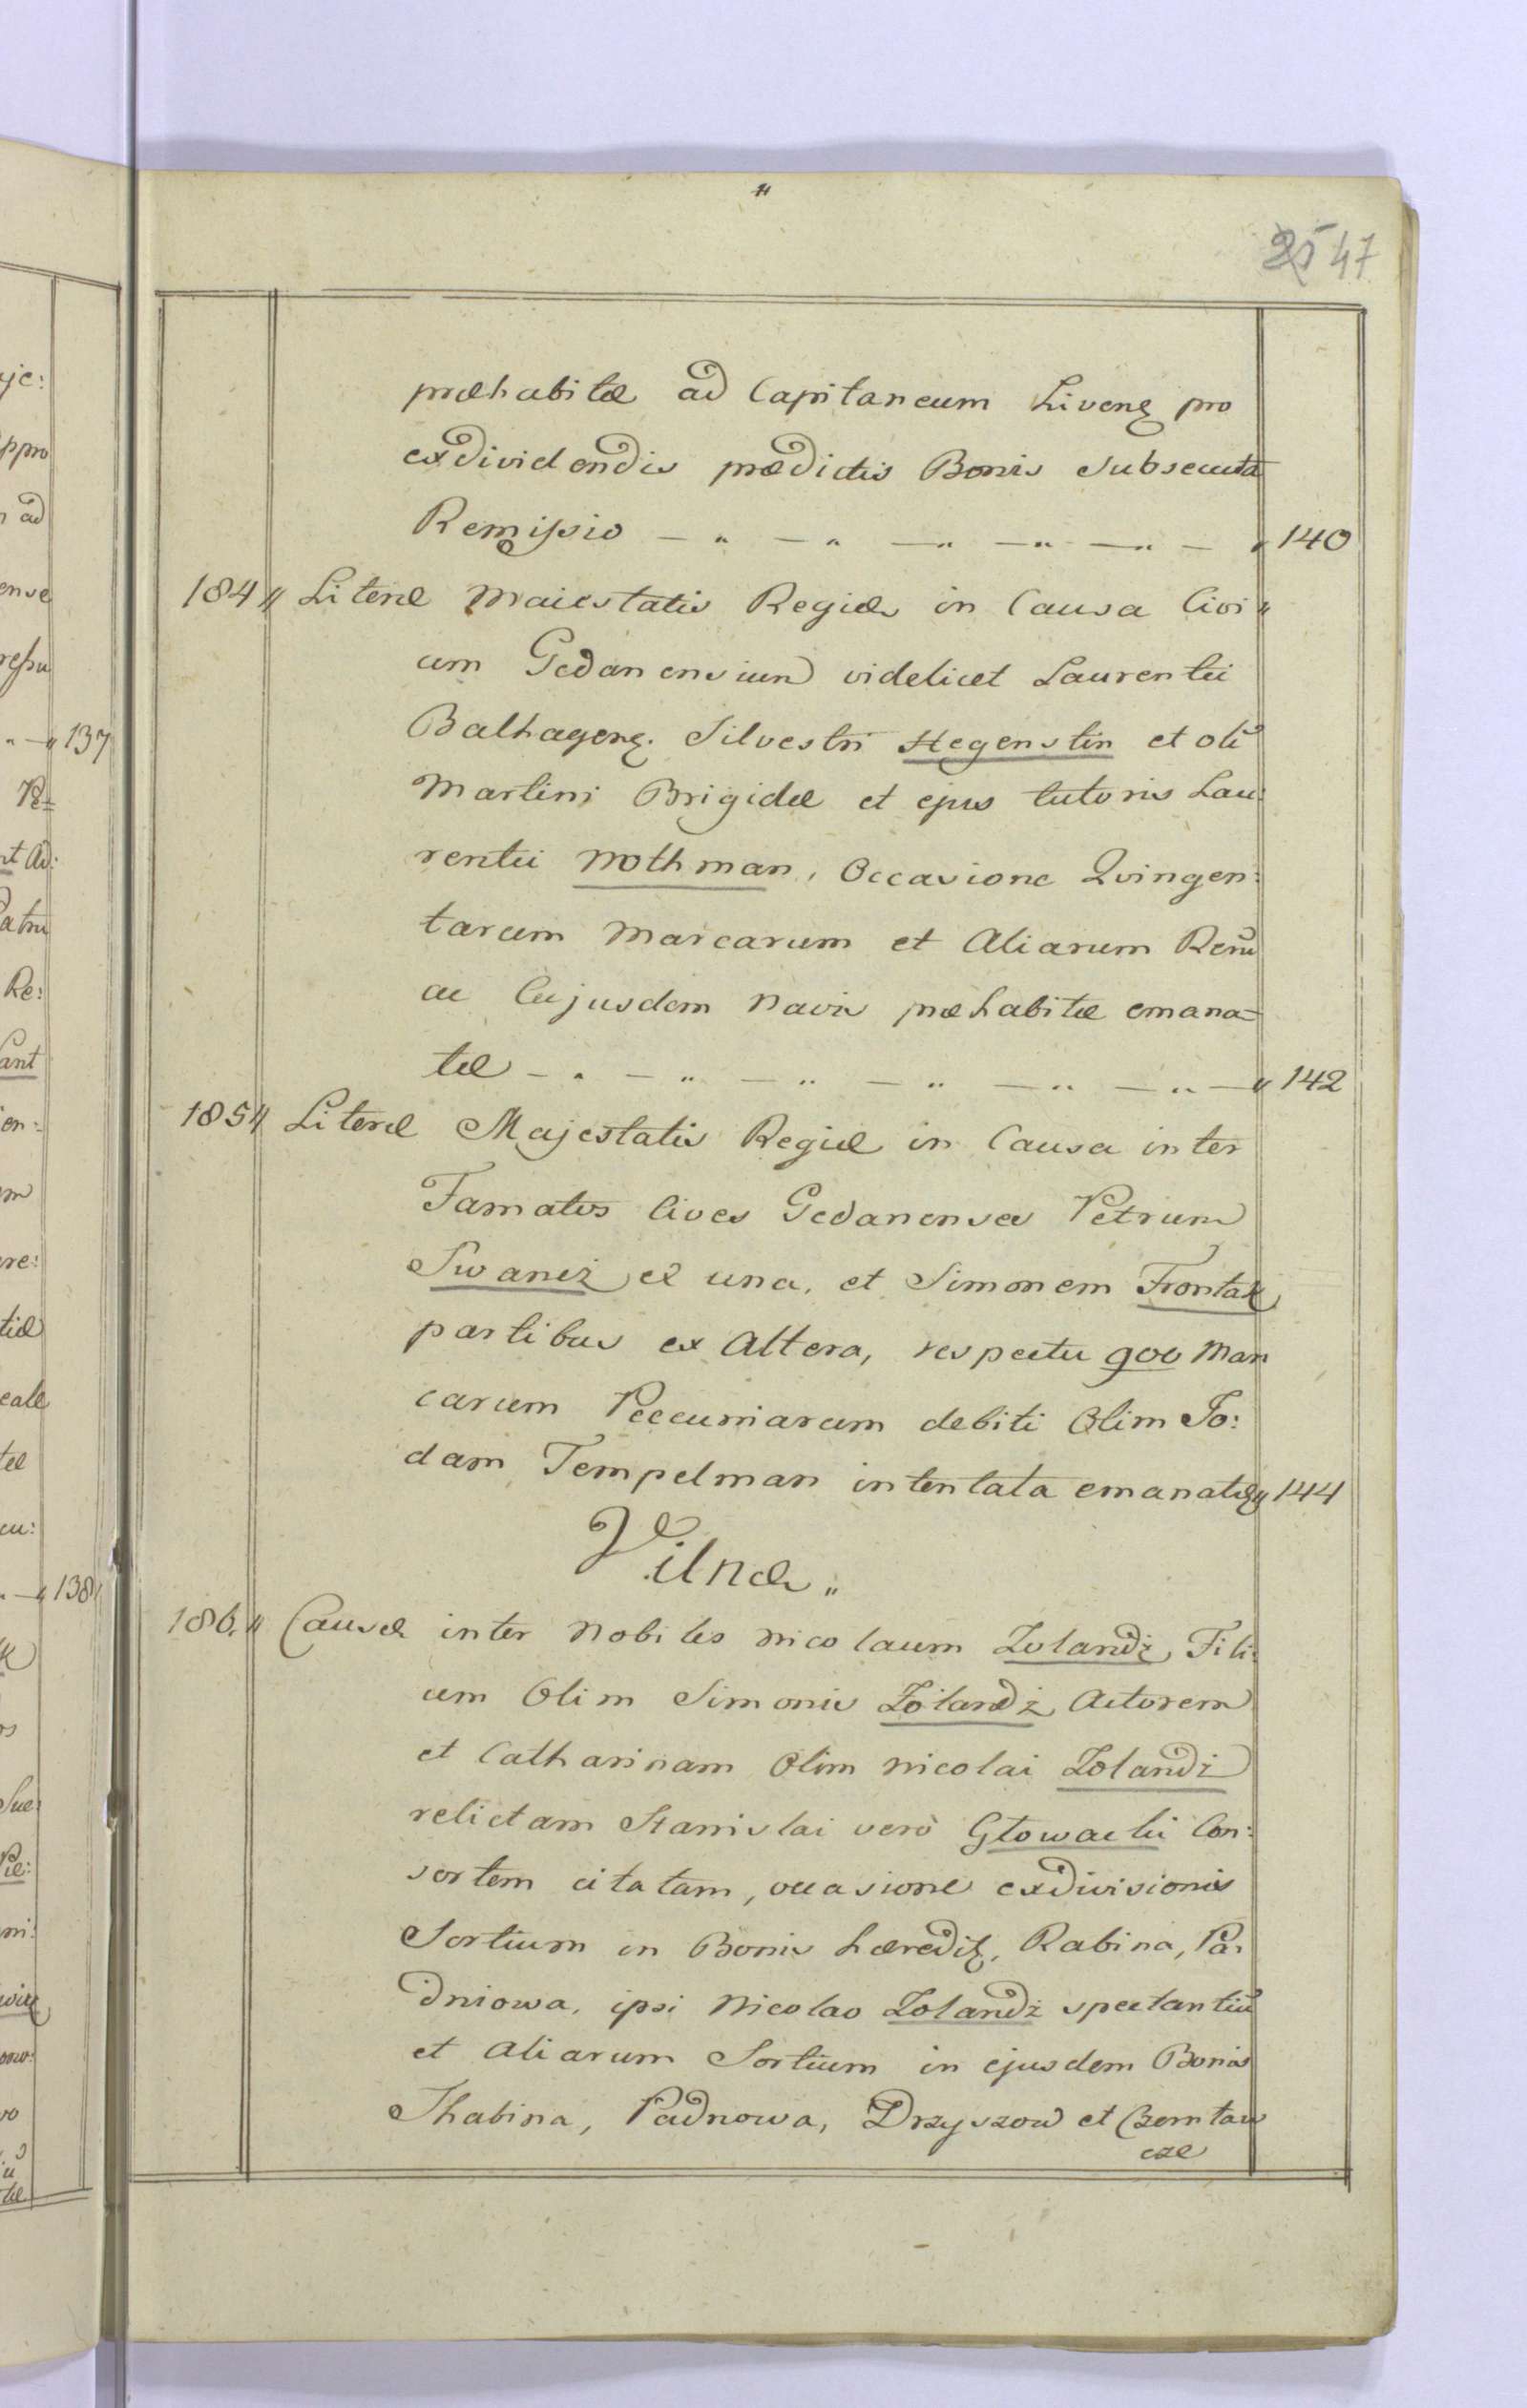 25 47
præhabitæ ad Capitaneum Livenȩ pro
exdividendis prædictis Bonis Subsecuta
Remissio — " — " — " — " — " — " 140
184 " Literæ Maiestatis Regiæ in Causa Civi "
um Gedanensium videlicet Laurentii
Balhagenȩ. Silvestri Hegenstin et oli
Martini Brigidæ et ejus tutoris Lau:
rentii Nothman, Occasione Qvingen:
tarum Marcarum et Aliarum Reru
ac Cujusdem Navis præhabitæ emana=
tæ — " — " — " — " — " — " — " 142
185 " Literæ Majestatis Regiæ in Causa inter
Famatos Cives Gedanenses Petrum
Swaneż ex una, et Simonem Frontak
partibus ex Altera, respectu 900 Mar
carum Peccuniarum debiti Olim Jo:
dam Tempelman intentata emanatæ " 144
Vilnæ "
186. " Causa inter Nobiles Nicolaum Zolandż, Fili:
um Olim Simonis Zolandż Actorem
et Catharinam Olim Nicolai Zolandż
relictam Stanislai verò Głowacki Con:
sortem citatam, occasione exdivisionis
Sortium in Bonis hæredit. Rabina, Pa:
dniowa, ipsi Nicolao Zolandż spectantiu
et Aliarum Sortium in ejusdem Bonis
Thabina, Padnowa, Drzyszow et Czemtau
cze
137
138